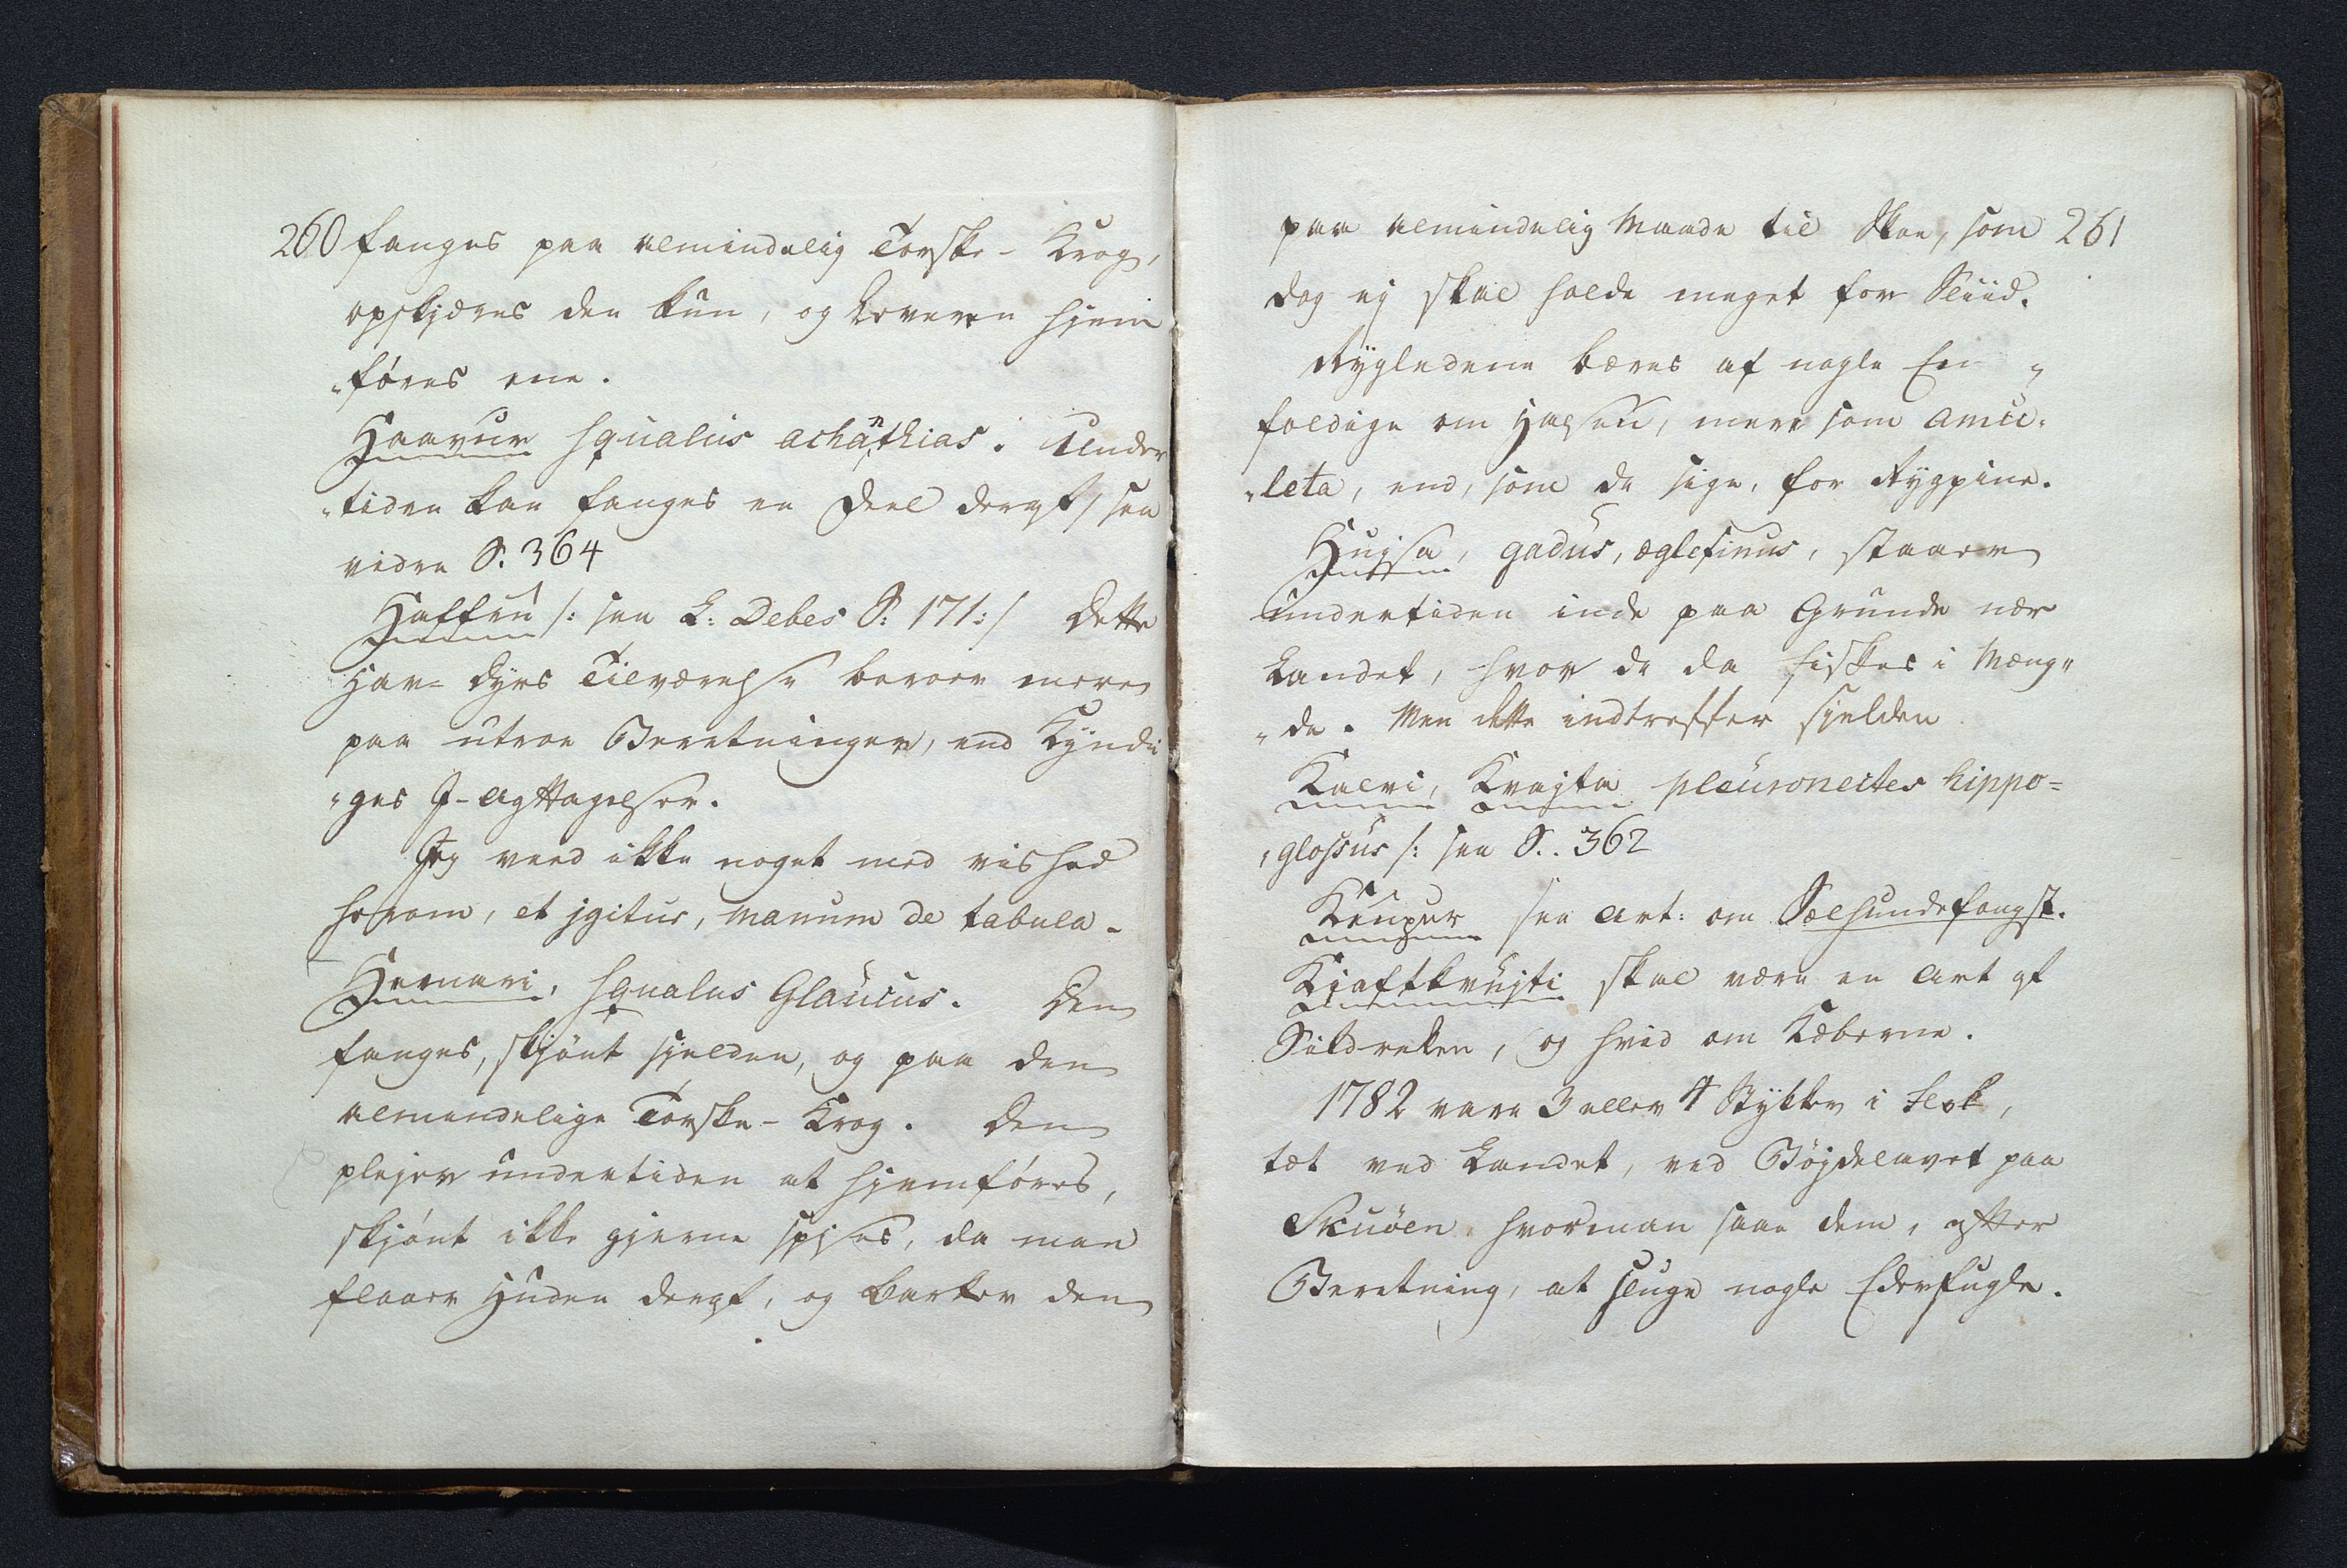 260 fanges paa almindelig Torske-Krog,
opskjæres den kun, og Leveren hjem
„føres ene.
Haavur squalus achanthias. Under
„tiden kan fanges en Deel deraf, see
videre S. 364
Haffrú /: see L: Debes S: 171:/ Dette
Hav-Dyrs Tilværelse beroer mere
paa utroe Beretninger, end Kyndi
„ges I-agttagelser.
Jeg veed ikke noget med vished
herom, et igitur, manum de tabula.
Hamari, squalus Glaucus. Den
fanges, skjønt sjelden, og paa den
almindelige Torske-Krog. Den
plejer undertiden at hjemføres,
skjønt ikke gjerne spises, da man
flaaer Huden deraf, og barker den
paa almindelig Maade til Skoe, som 261
dog ej skal holde meget for Sliid.
Rygledene bæres af nogle Een „
foldige om Halsen, mere som amu„
„leta, end, som de sige, for Rygpine.
Hujsa, gadus, æglefinus, staaer
undertiden inde paa Grunde nær
Landet, hvor de da fiskes i Mæng„
„de. Men dette indtreffer sjelden.
Kalvi, Kvajta pleuronectes hippo=
„glossus /: see S.. 362
Knupur see Art: om Sælhundefangst.
Kjaftkvujti skal være en Art af
Sildreken, og hvid om Kæberne.
1782 vare 3 eller 4 Stykker i Flok,
tæt ved Landet, ved Böjdelavet paa
Skuöen hvor man saae dem, efter
Beretning, at sluge nogle Ederfugle.